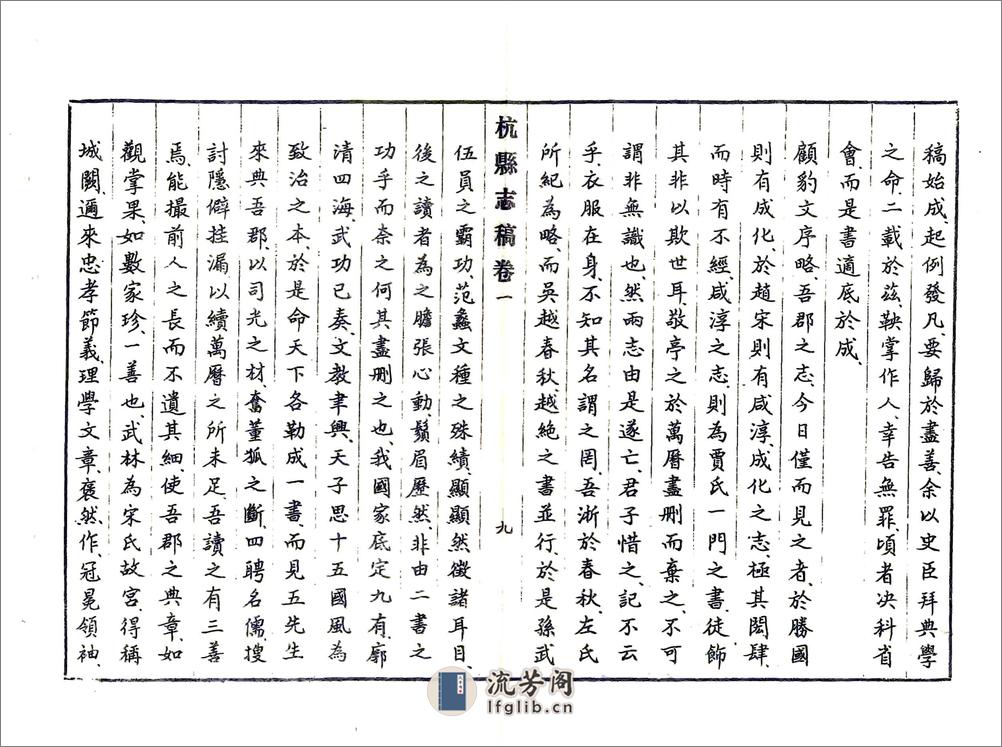 稿始成、起例發凡、要歸於盡善、余以史臣拜典學
之命、二載於茲、鞅掌作人、幸告無罪、頃者決科省
會、而是書適底於成、
顧豹文序略、吾郡之志、今日僅而見之者、於勝國
則有成化、於趙宋則有咸淳、成化之志、極其閎肆
而時有不經、咸淳之志、則為賈氏一門之書、徒飾
其非以欺世耳、敬亭之於萬曆盡删而棄之、不可
謂非無識也、然兩志由是遂亡、君子惜之、記不云
乎、衣服在身、不知其名謂之罔、吾淅於春秋、左氏
所紀為略、而吳越春秋、越絶之書並行、於是孫武
杭縣志稿卷一
九
伍員之霸功、范蠡文種之殊績、顯顯然徵諸耳目、
後之讀者為之膽張心動、鬚眉歷然、非由二書之
功乎、而奈之何其盡删之也、我國家底定九有、廓
清四海、武功已奏、文教聿興、天子思十五國風為
致治之本、於是命天下各勒成一書、而見五先生
來典吾郡、以司光之材、奮董狐之斷、四聘名儒、搜
討隱僻挂漏、以續萬曆之所未足、吾讀之有三善
焉、能撮前人之長而不遺其細、使吾郡之典章、如
觀掌果、如數家珍、一善也、武林為宋氏故宮、得稱
城闕、邇來忠孝節義、理學文章、褎然作、冠冕領袖、
流芳阁
lfglib.cn